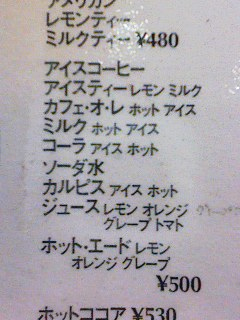 アメリカン
レモンティー
ミルクティー ¥480
アイスコーヒー
アイスティー レモン ミルク
カフェ・オ・レ ホット アイス
ミルク ホット アイス
コーラ アイス ホット
ソーダ水
カルピス アイス ホット
ジュース レモン オレンジ
グレープ トマト
ホット・エード レモン
オレンジ グレープ
¥500
ホットココア ¥530